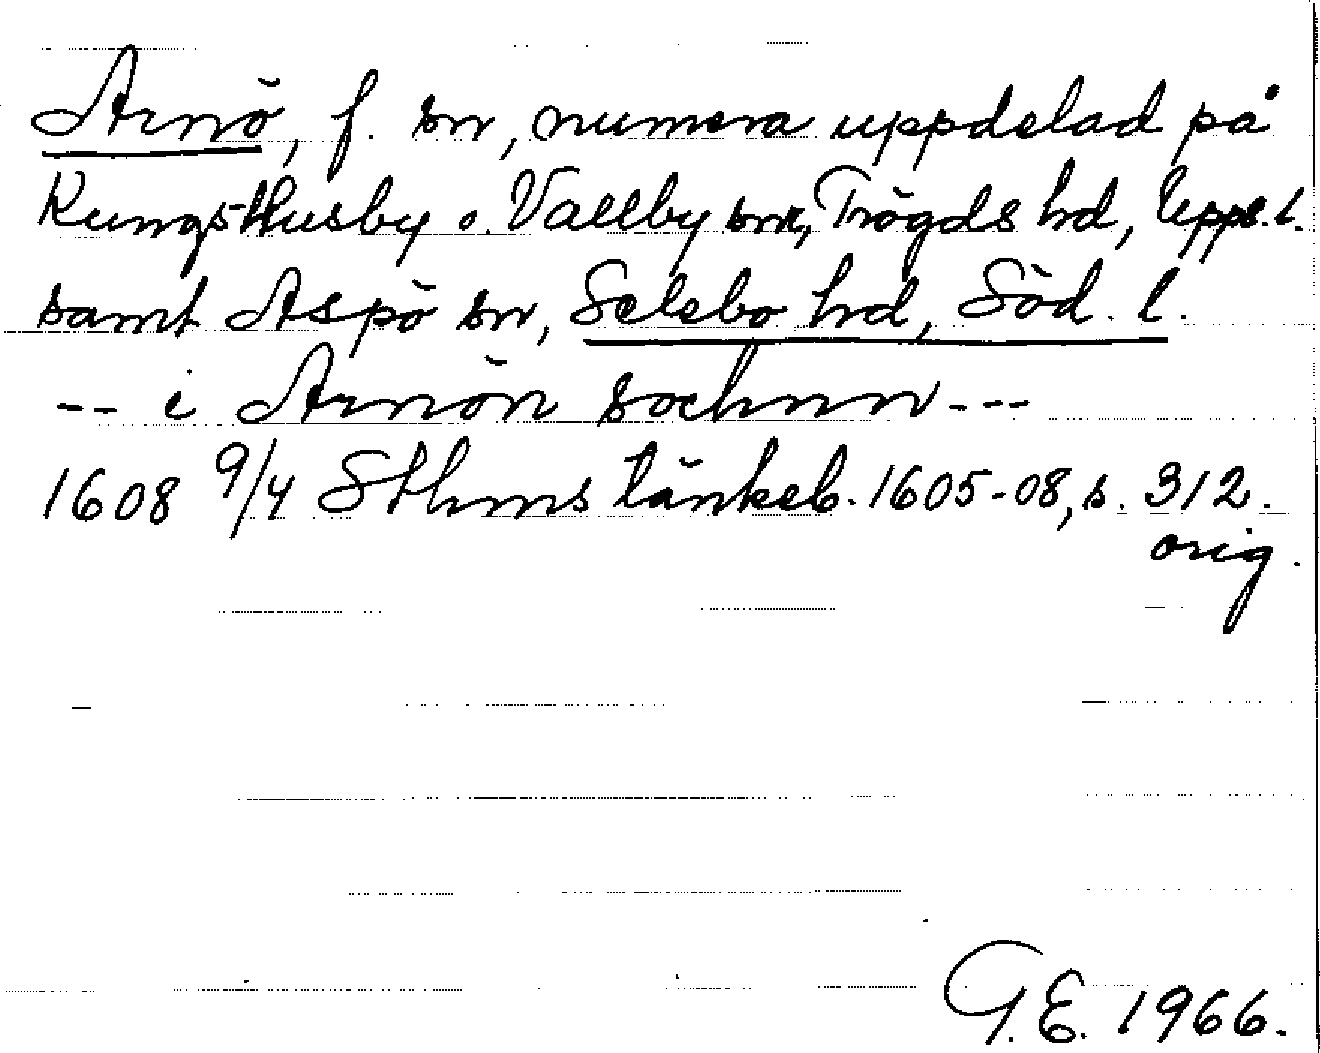 Arnö, f. sn, numera uppdelad på
Kungs-Husby o. Vallby snr, Trögds hd, Upps. l.
samt Aspö sn, Selebo hd, Söd. l.
-- i Arnön sochnn ---
1608 9/4 Sthms tänkeb. 1605-08, s. 312.
orig.
G.E. 1966.